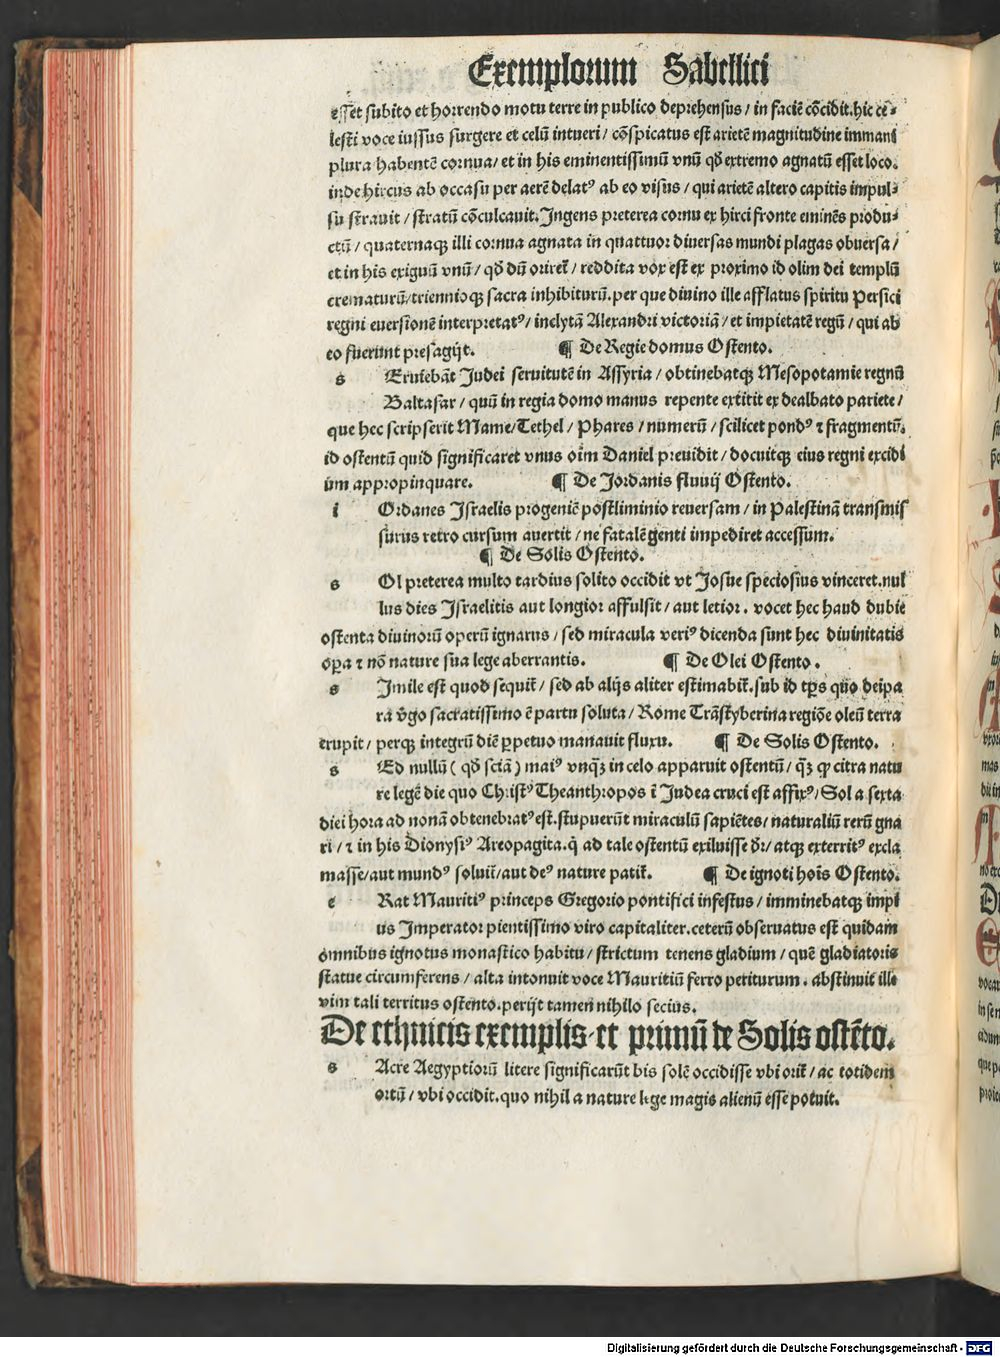 Exemplorum Sabellici
esset subito et horrendo motu terre in publico deprehensus / in faciē cōcidit. hic ce⸗
lesti voce iussus surgere et celū intueri / cōspicatus est arietē magnitudine immani
plura habentē cornua / et in his eminentissimū vnū qđ extremo agnatū esset loco.
inde hircus ab occasu per aerē delatꝰ ab eo visus / qui arietē altero capitis impul⸗
su strauit / stratū cōculcauit. Ingens preterea cornu ex hirci fronte eminēs produ⸗
ctū / quaternaqꝫ illi cornua agnata in quattuor diuersas mundi plagas obuersa /
et in his exiguū vnū / qđ dū orireť / reddita vox est ex proximo id olim dei templū
crematurū / triennioqꝫ sacra inhibiturū. per que diuino ille afflatus spiritu Persici
regni euersionē interpretatꝰ / inclytā Alexandri victoriā / et impietatē regū / qui ab
eo fuerunt presagijt. ¶ De Regie domus Ostento.
s Eruiebāt Judei seruitutē in Assyria / obtinebatqꝫ Mesopotamie regnū
Baltasar / quū in regia domo manus repente extitit ex dealbato pariete /
que hec scripserit Mame / Tethel / Phares / numerū / scilicet pondꝰ ⁊ fragmentū.
id ostentū quid significaret vnus oīm Daniel preuidit / docuitqꝫ eius regni excidi
um appropinquare. ¶ De Jordanis fluuij Ostento.
i Ordanes Israelis progeniē postliminio reuersam / in Palestinā transmis
surus retro cursum auertit / ne fatalē genti impediret accessum.
¶ De Solis Ostento.
s Ol preterea multo tardius solito occidit vt Josue speciosius vinceret. nul
lus dies Israelitis aut longior affulsit / aut letior. vocet hec haud dubie
ostenta diuinorū operū ignarus / sed miracula veriꝰ dicenda sunt hec diuinitatis
oꝑa ⁊ nō nature sua lege aberrantis. ¶ De Olei Ostento.
s Imile est quod sequiť / sed ab alijs aliter estimabiť. sub id tꝑs quo deipa
ra v̄go sacratissimo ē partu soluta / Rome Trāstyberina regiōe oleū terra
erupit / perqꝫ integrū diē ꝑpetuo manauit fluxu. ¶ De Solis Ostento.
s Ed nullū ( qđ sciā ) maiꝰ vnqꝫ̄ in celo apparuit ostentū / qꝫ̄ ꝙ citra natu
re legē die quo Christꝰ Theanthropos ī Judea cruci est affixꝰ / Sol a sexta
diei hora ad nonā obtenebratꝰ est. stupuerūt miraculū sapiētes / naturaliū rerū gna
ri / ⁊ in his Dionysiꝰ Areopagita. q̇ ad tale ostentū exiluisse dr̄ / atqꝫ exterritꝰ excla
masse / aut mundꝰ soluiť / aut deꝰ nature patiť. ¶ De ignoti hoīs Ostento.
e Rat Mauritiꝰ princeps Gregorio pontifici infestus / imminebatqꝫ impi
us Imperator pientissimo viro capitaliter. ceterū obseruatus est quidam
omnibus ignotus monastico habitu / strictum tenens gladium / quē gladiatoris
statue circumferens / alta intonuit voce Mauritiū ferro periturum. abstinuit ille
vim tali territus ostento. perijt tamen nihilo secius.
De ethnicis exemplis et primū de Solis ostēto.
s Acre Aegyptiorū litere significarūt bis solē occidisse vbi oriť / ac totidem
ortū / vbi occidit. quo nihil a nature lege magis alienū esse potuit.
Digitalisierung gefördert durch die Deutsche Forschungsgemeinschaft - DFG